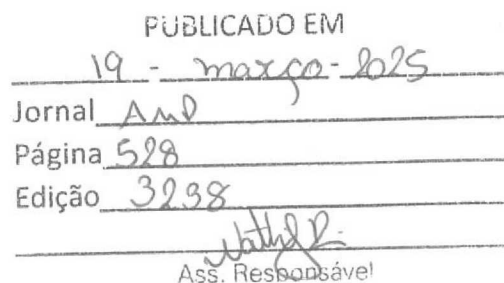 PUBLICADO EM
19 - março - 2025
Jornal AMP
Página 528
Edição 3238
Ass. Responsável